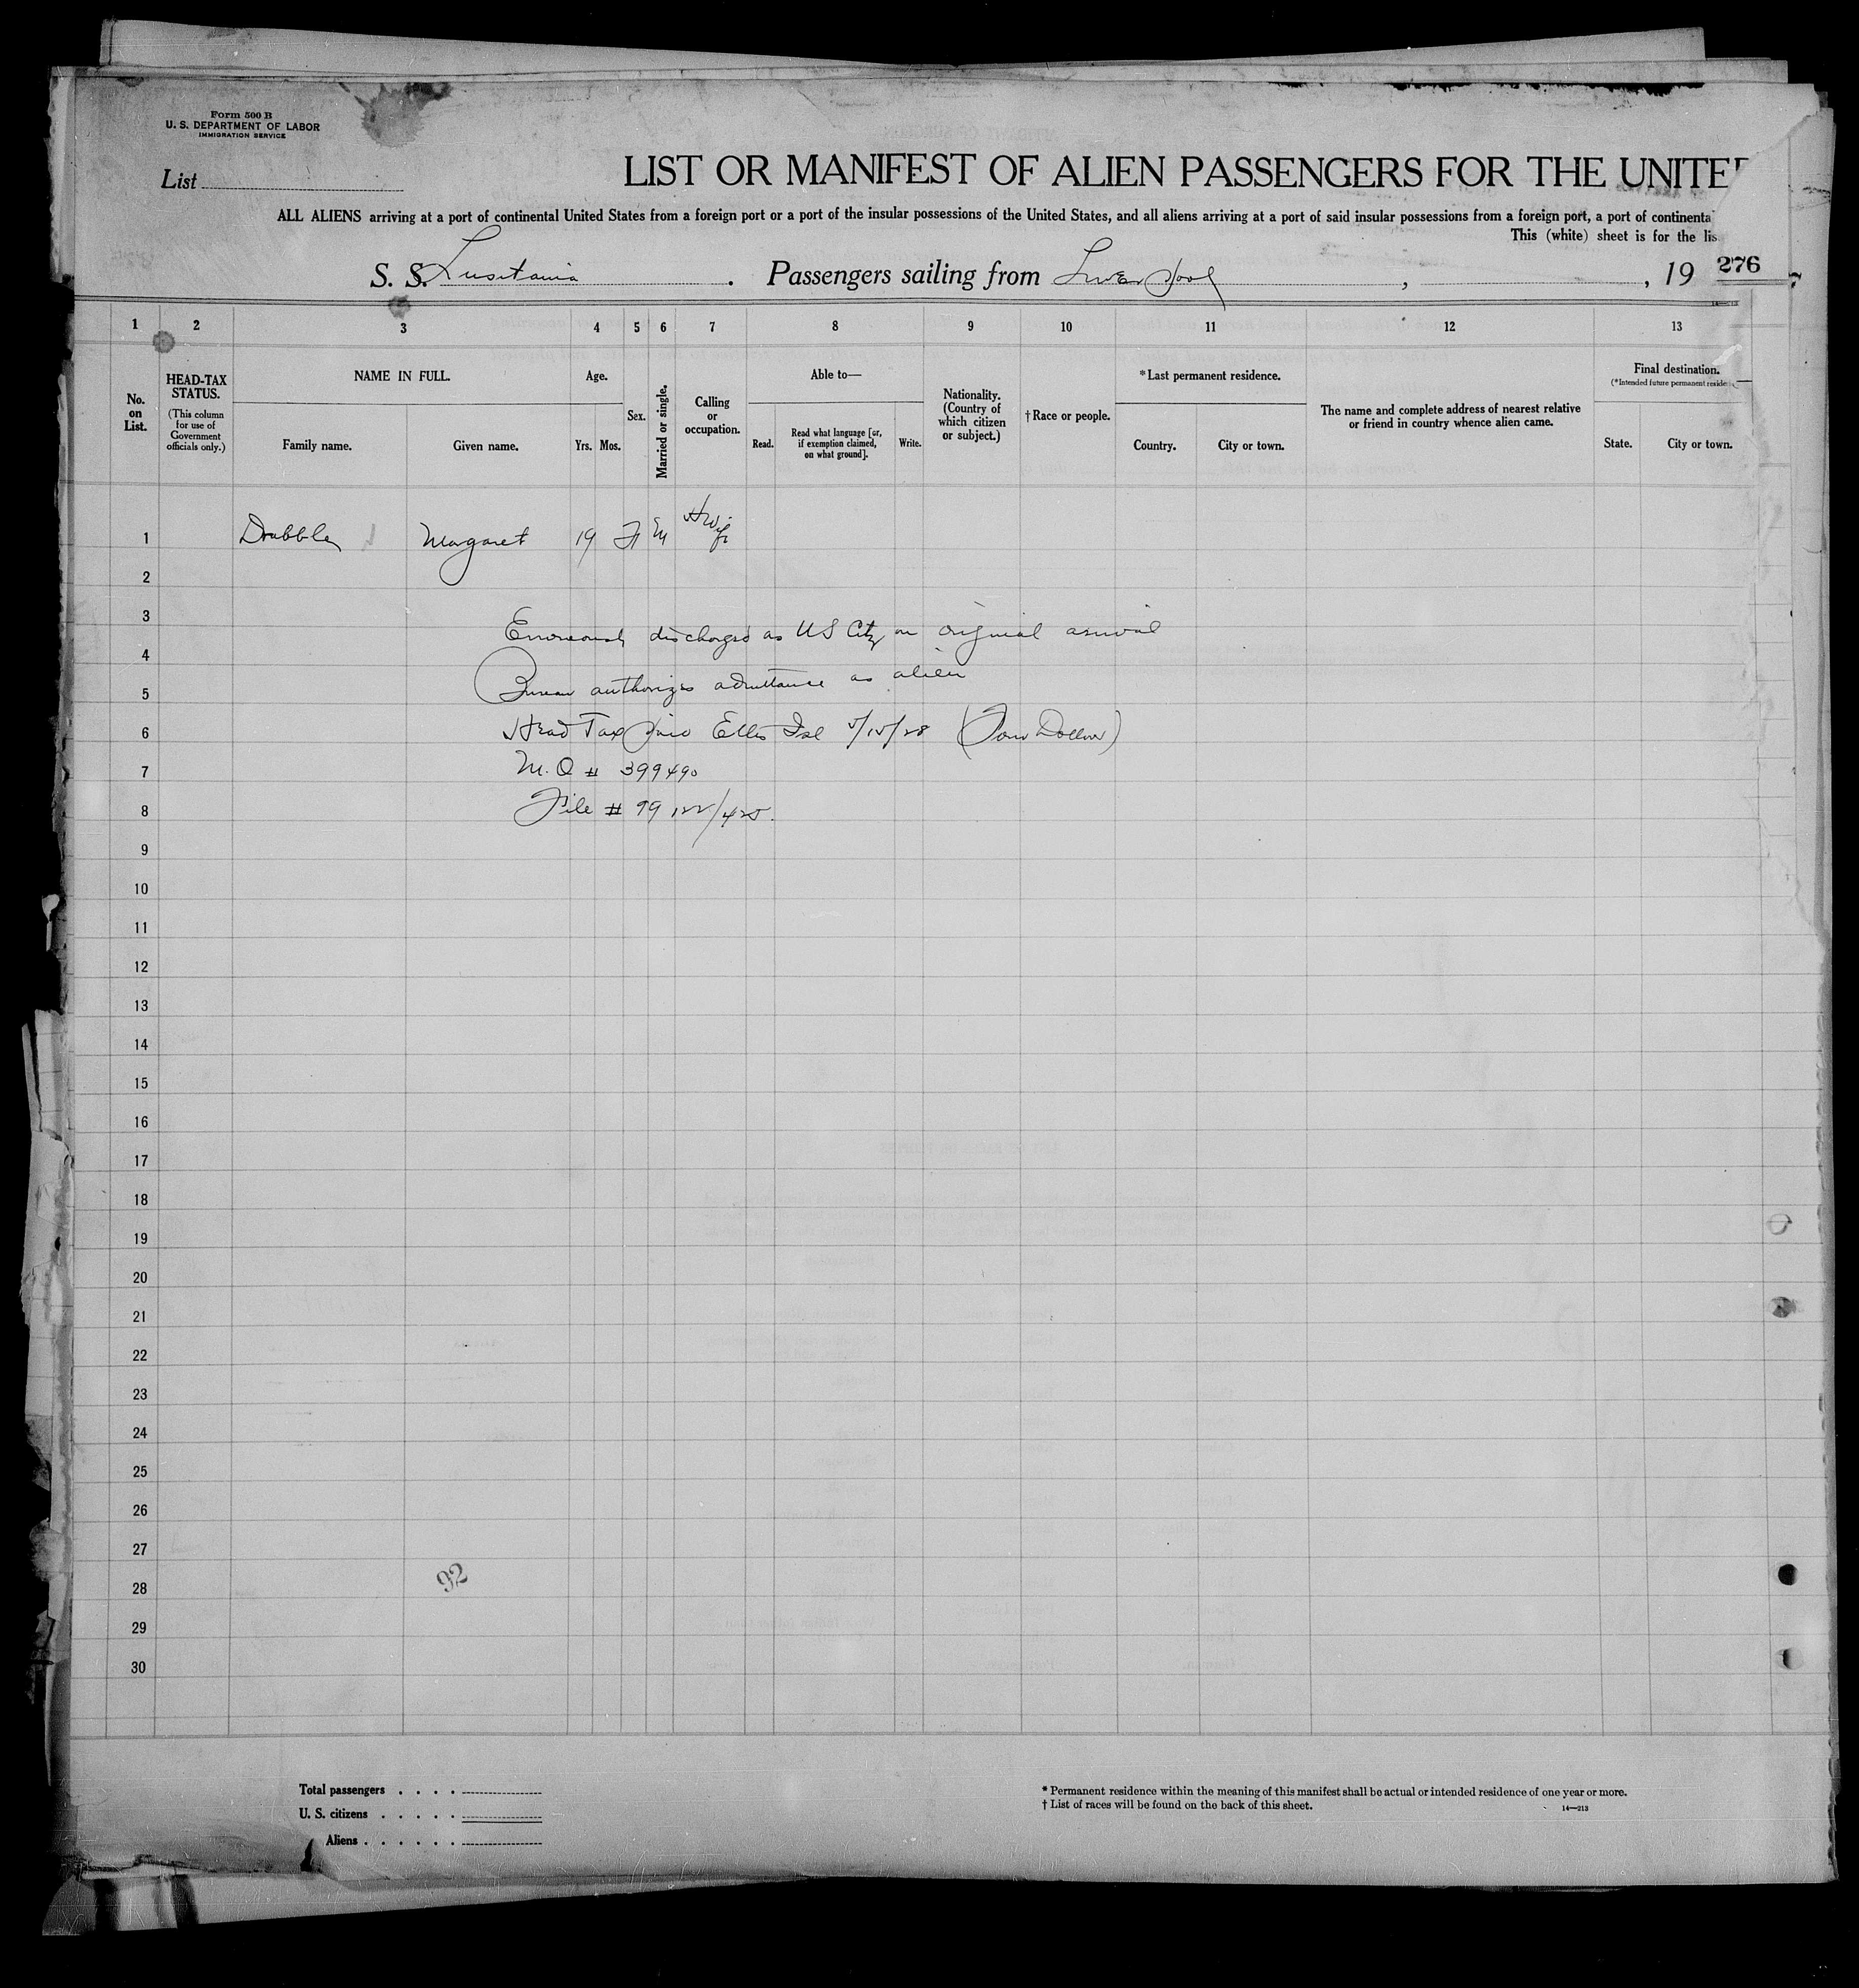 Form 500 B
U. S. DEPARTMENT OF LABOR
IMMIGRATION SERVICE
List
LIST OR MANIFEST OF ALIEN PASSENGERS FOR THE UNITE
ALL ALIENS arriving at a port of continental United States from a foreign port or a port of the insular possessions of the United States, and all aliens arriving at a port of said insular possessions from a foreign port, a port of continenta
This (white) sheet is for the lis
S. S. Lusitania . Passengers sailing from Liverpool , , 19 276
1 2 3 4 5 6 7 8 9 10 11 12 13
No. on List.
HEAD-TAX STATUS.
(This column for use of Government officials only.)
NAME IN FULL.
Family name. Given name.
Age.
Yrs. Mos.
Sex.
Married or single.
Calling or occupation.
Able to—
Read. Read what language [or, if exemption claimed, on what ground]. Write.
Nationality. (Country of which citizen or subject.)
† Race or people.
* Last permanent residence.
Country. City or town.
The name and complete address of nearest relative or friend in country whence alien came.
Final destination.
(* Intended future permanent reside
State. City or town.
1 Drabble Margaret 19 F M HWife
2
3
Erroneously discharged as US Citz on original arrival
4
Bureau authorizes admittance as alien
5
6 Head Tax paid Ellis Isl 5/15/28 (Four Dollars)
7 M.O # 399490
8 File # 99122/425.
9
10
11
12
13
14
15
16
17
18
19
20
21
22
23
24
25
26
27
92
28
29
30
Total passengers . . . .
U. S. citizens . . . . .
Aliens . . . . . .
* Permanent residence within the meaning of this manifest shall be actual or intended residence of one year or more.
† List of races will be found on the back of this sheet. 14—213